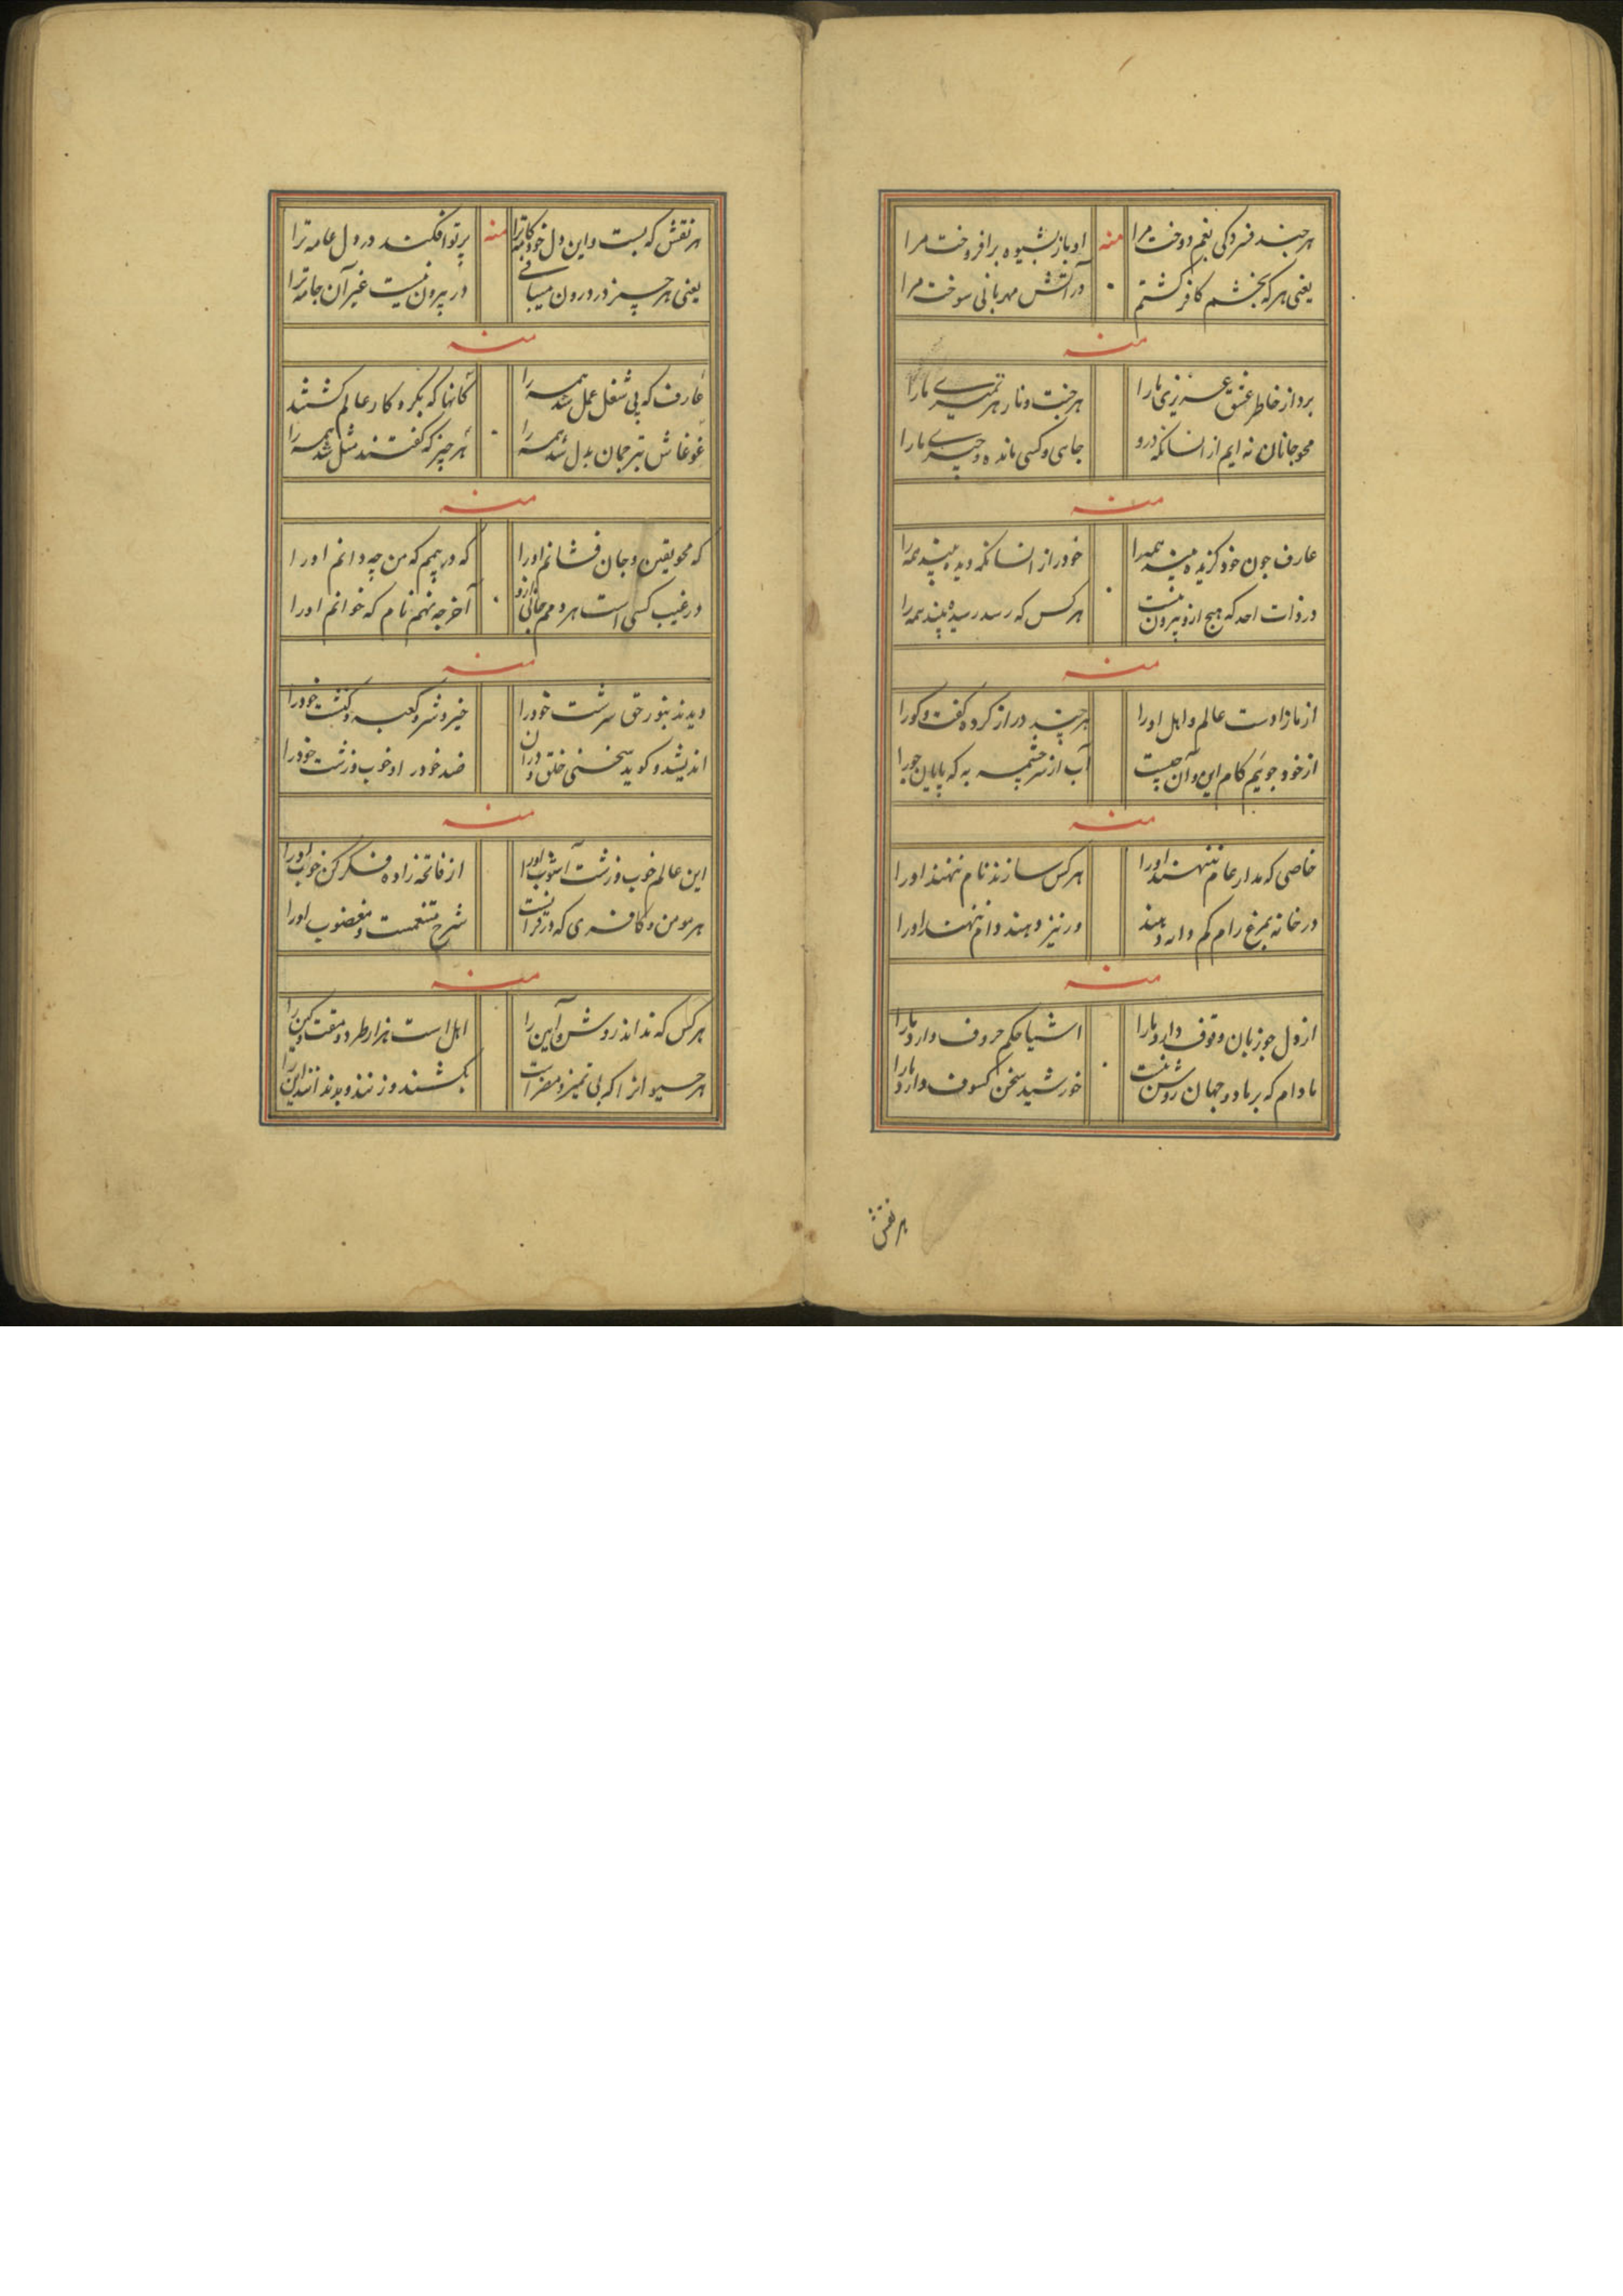 هر چند فسردگی بغم دوخت مرا منه او باز بشیوه برافروخت مرا
یعنی هر که بخشم کافر کشتم در آتش مهربانی سوخت مرا
منه
برد از خاطر عشق عزیزی ما را هر جنت و نار هر تمیزی ما را
محو جانان نه ایم از انسانکه درو جای و کسی مانده و چیزی ما را
منه
عارف چون خود گزیده بیند همه را خود را ز انسانکه دیده بیند همه را
در ذات احد که هیچ ازو بیرون نیست هر کس که رسد رسیده بیند همه را
منه
از ما زادست عالم و اهل او را هر چند دراز کرده گفت و گو را
از خود جوییم کام این و آن چیست آب از سر چشمه به که پایان جو را
منه
خاصی که مدار عام ننهند او را هر کس سازند نام ننهند او را
در خانه بمرغ رام کم دانه دهند ور نیز دهند دام ننهند او را
منه
از دل جو زبان وقوف دارد ما را اشیا حکم حروف دارد ما را
مادام که بر ما دو جهان روشن نیست خورشید سخن کسوف دارد ما را
هر نقش
هر نقش که بست این دل خودکامه ترا منه پرتو افکند در دل عامه ترا
یعنی هر چیز در درون میبافی در بیرون نیست غیر آن جامه ترا
منه
عارف که پی شغل عمل شد همه را کانها که بکر و کار عالم گشتند
غوغاش ترجمان بدل شد همه را هر چیز که گفتند مثل شد همه را
منه
که محو یقین و جان فشانم او را که در بیمم که من چه دانم او را
در غیب کسی است هر دمم جانی ازو آخر چه نهم نام که خوانم او را
منه
دیدند بنور حق سرشت خود را خیر و شر و کعبه و کنشت خود را
اندیشد و گوید سخنی خلق و در آن ضد خود را و خوب و زشت خود را
منه
این عالم خوب و زشت آشوب او را از فاتحه زاده فکر کن خوب او را
هر مومن و کافری که در قرآنست شرح منعمست و مغضوب او را
منه
هر کس که نداند روش و آیین را اهل است هزار طرد و مقت و کین را
هر حیوانرا که بی تمیز و مضر است بکشند و زنند و بدندانند این را